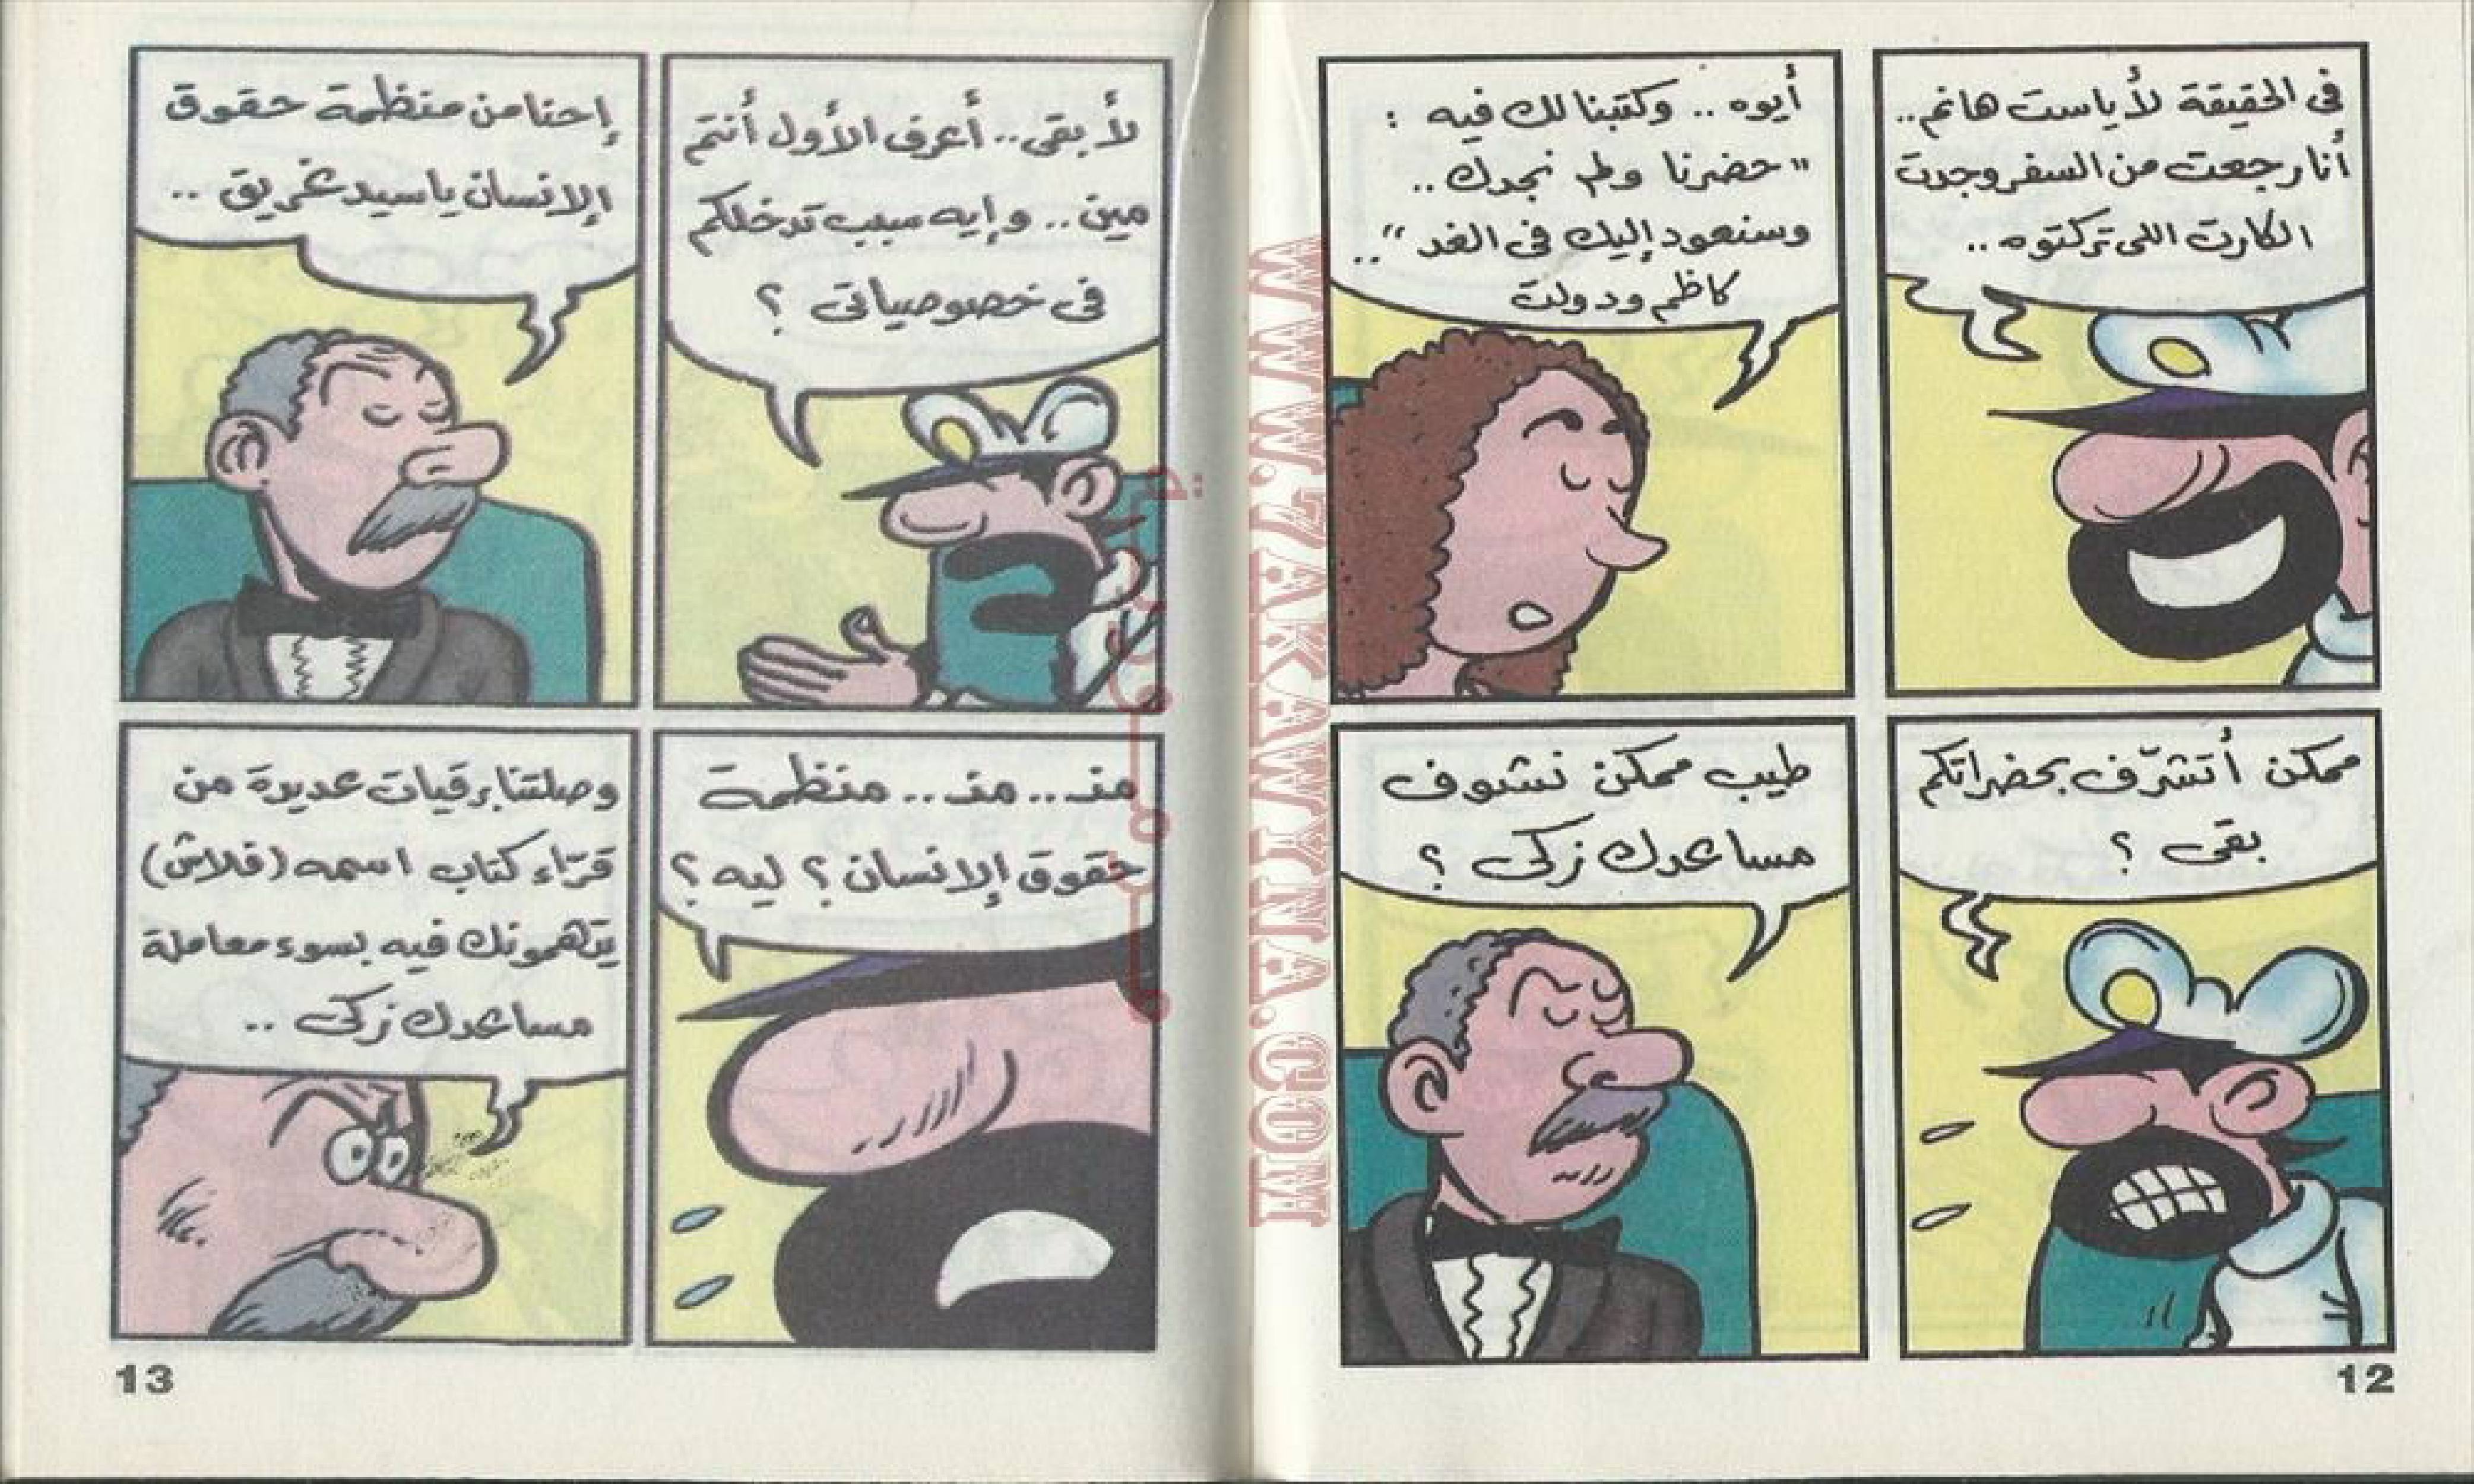 فى الحقيقة لأ ياست هانم..
أنا رجعت من السفر وجدت
الكارت اللى تركتوه ..
أيوه .. وكتبنا لك فيه :
" حضرنا ولم نجدك ..
وسنعود إليك فى الغد " ..
كاظم ودولت
ممكن أتشرّف بحضراتكم
بقى ؟
طيب ممكن نشوف
مساعدك زكى ؟
لأ بقى .. أعرف الأول أنتم
مين .. وإيه سبب تدخلكم
فى خصوصياتى ؟
إحنا من منظمة حقوق
الإنسان ياسيد غريق ..
منـ... منـ.. منظمة
حقوق الإنسان ؟ ليه ؟
وصلتنا برقيات عديدة من
قرّاء كتاب اسمه (فلاش)
يتهمونك فيه بسوء معاملة
مساعدك زكى ..
12
13